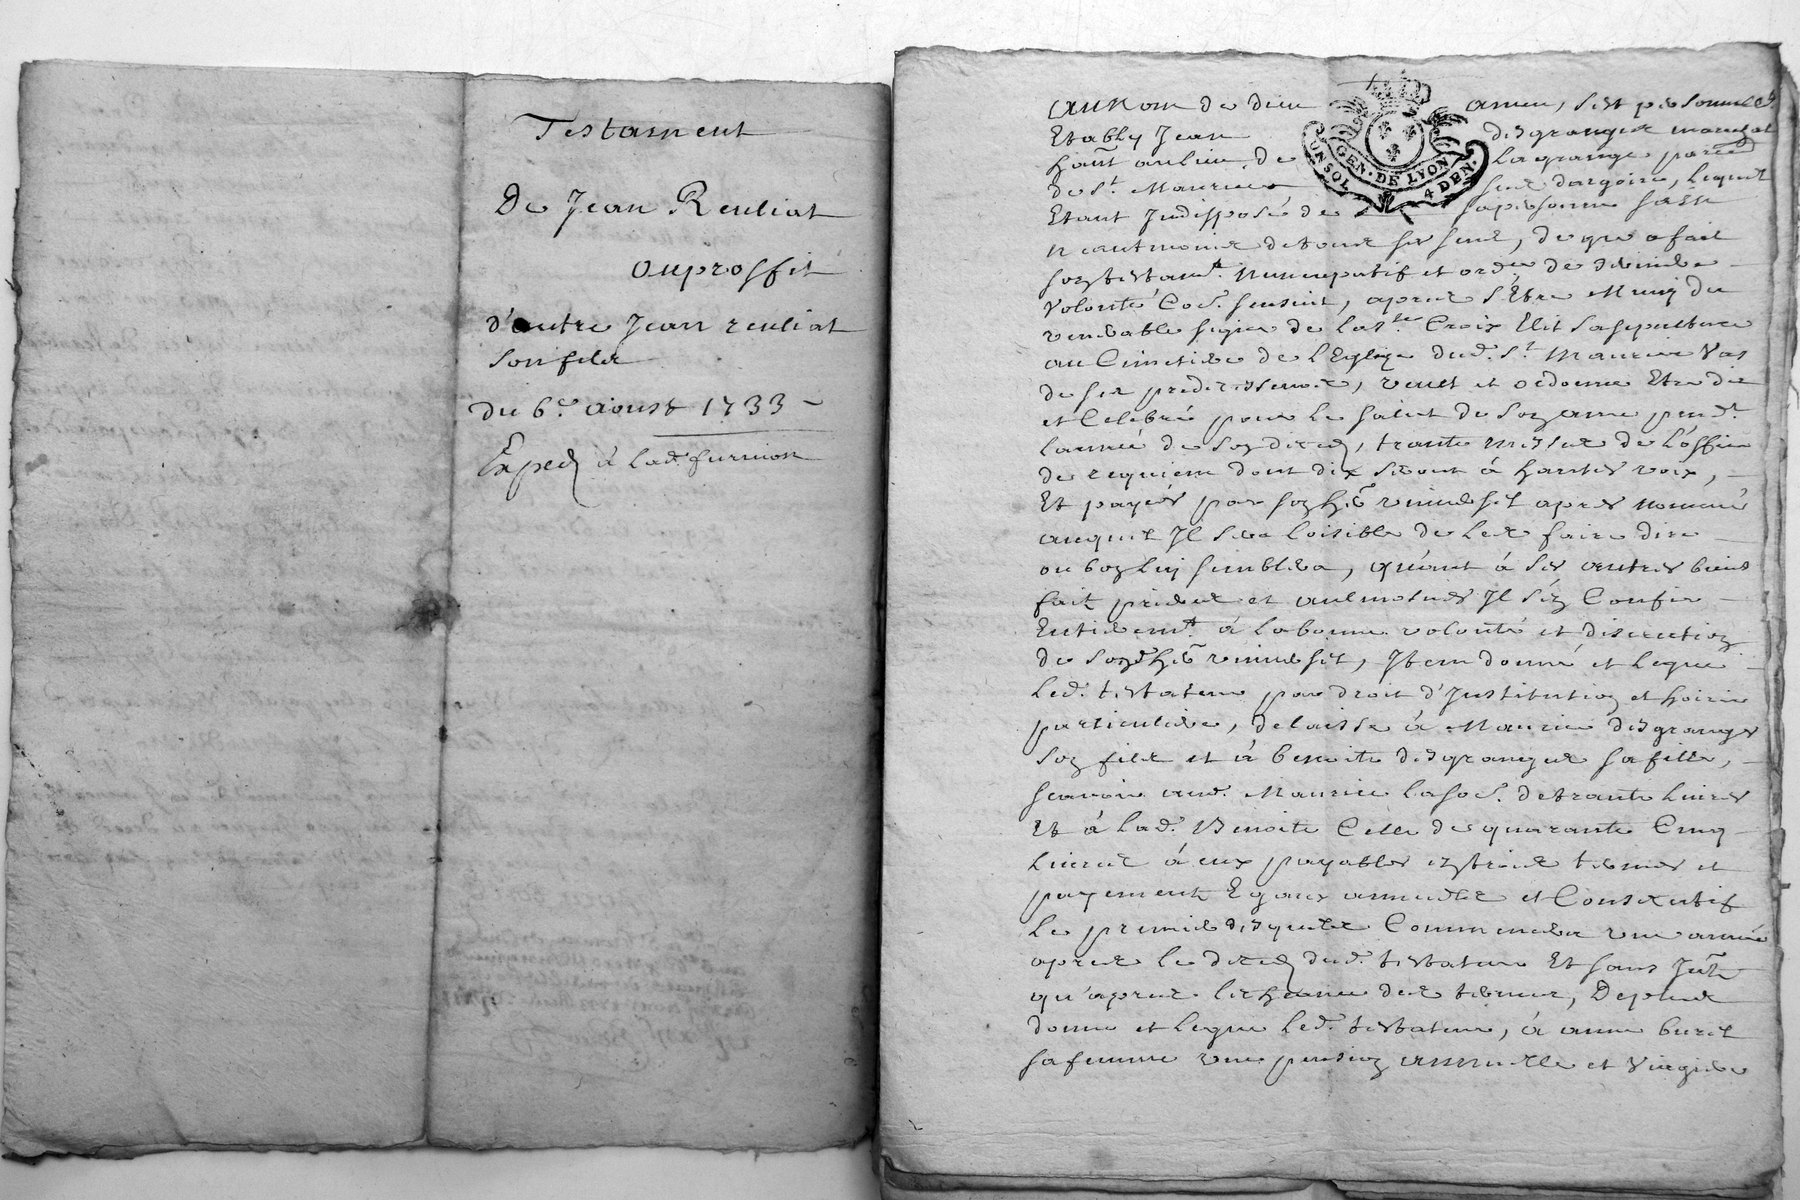 Testament
De Jean Reuliat
auproffit
d'autre Jean reuliat
son fils
du 6e. aoust 1733
Exped à lad. furnion
Au Nom de dieu amen, s'est personnelt
Etably Jean desgranges marchat
hant au lieu de Lagrange paroe
de St. Maurice sur dargoire, Lequel
Etant Indisposé de sa personne sain
neantmoins de tous ses sens, de gre a fait
son testamt. Nuncupatif et ordre de derniere
volonté Co~e. sensuit, apres s'Etre Muny du
venerable signe de la Ste. Croix Elit sa sepulture
au Cimetiere de l'Eglise dud. St. Maurice Vas
de ses predecesseurs, veult et ordonne Etre dit
et Celebré pour le salut de son ame pendt.
l'année de son deced, trante messes de l'office
de requiem dont dix seront à hautes voix,
Et payés par son her universel apres nommé
auquel Il sera loisible de les faire dire
ou bon luy semblera, quant à ses autres biens
faits prieres et aulmosnes Il s'en Confie
Entieremt. à la bonne volonté et discretion
de sond her universel, Item donne et legue
led. testateur par droit d'Institution et hoirie
particuliere, delaisse à Maurice desgranges
son fils et à benoite desgranges sa fille,
scavoir aud. Maurice la so~e. de trante livres
Et à lad. Benoite Celle de quarante Cinq
livres à eux payables en trois termes et
payements Egaux annuels et Consecutifs
le premier desquels Commencera une année
apres le deced dud. testateur Et sans Int
qu'apres l'echeance des termes, De plus
donne et legue led. testateur, à anne buret
sa femme une pension annuelle et viagere
GEN. DE LYON
4 DEN.